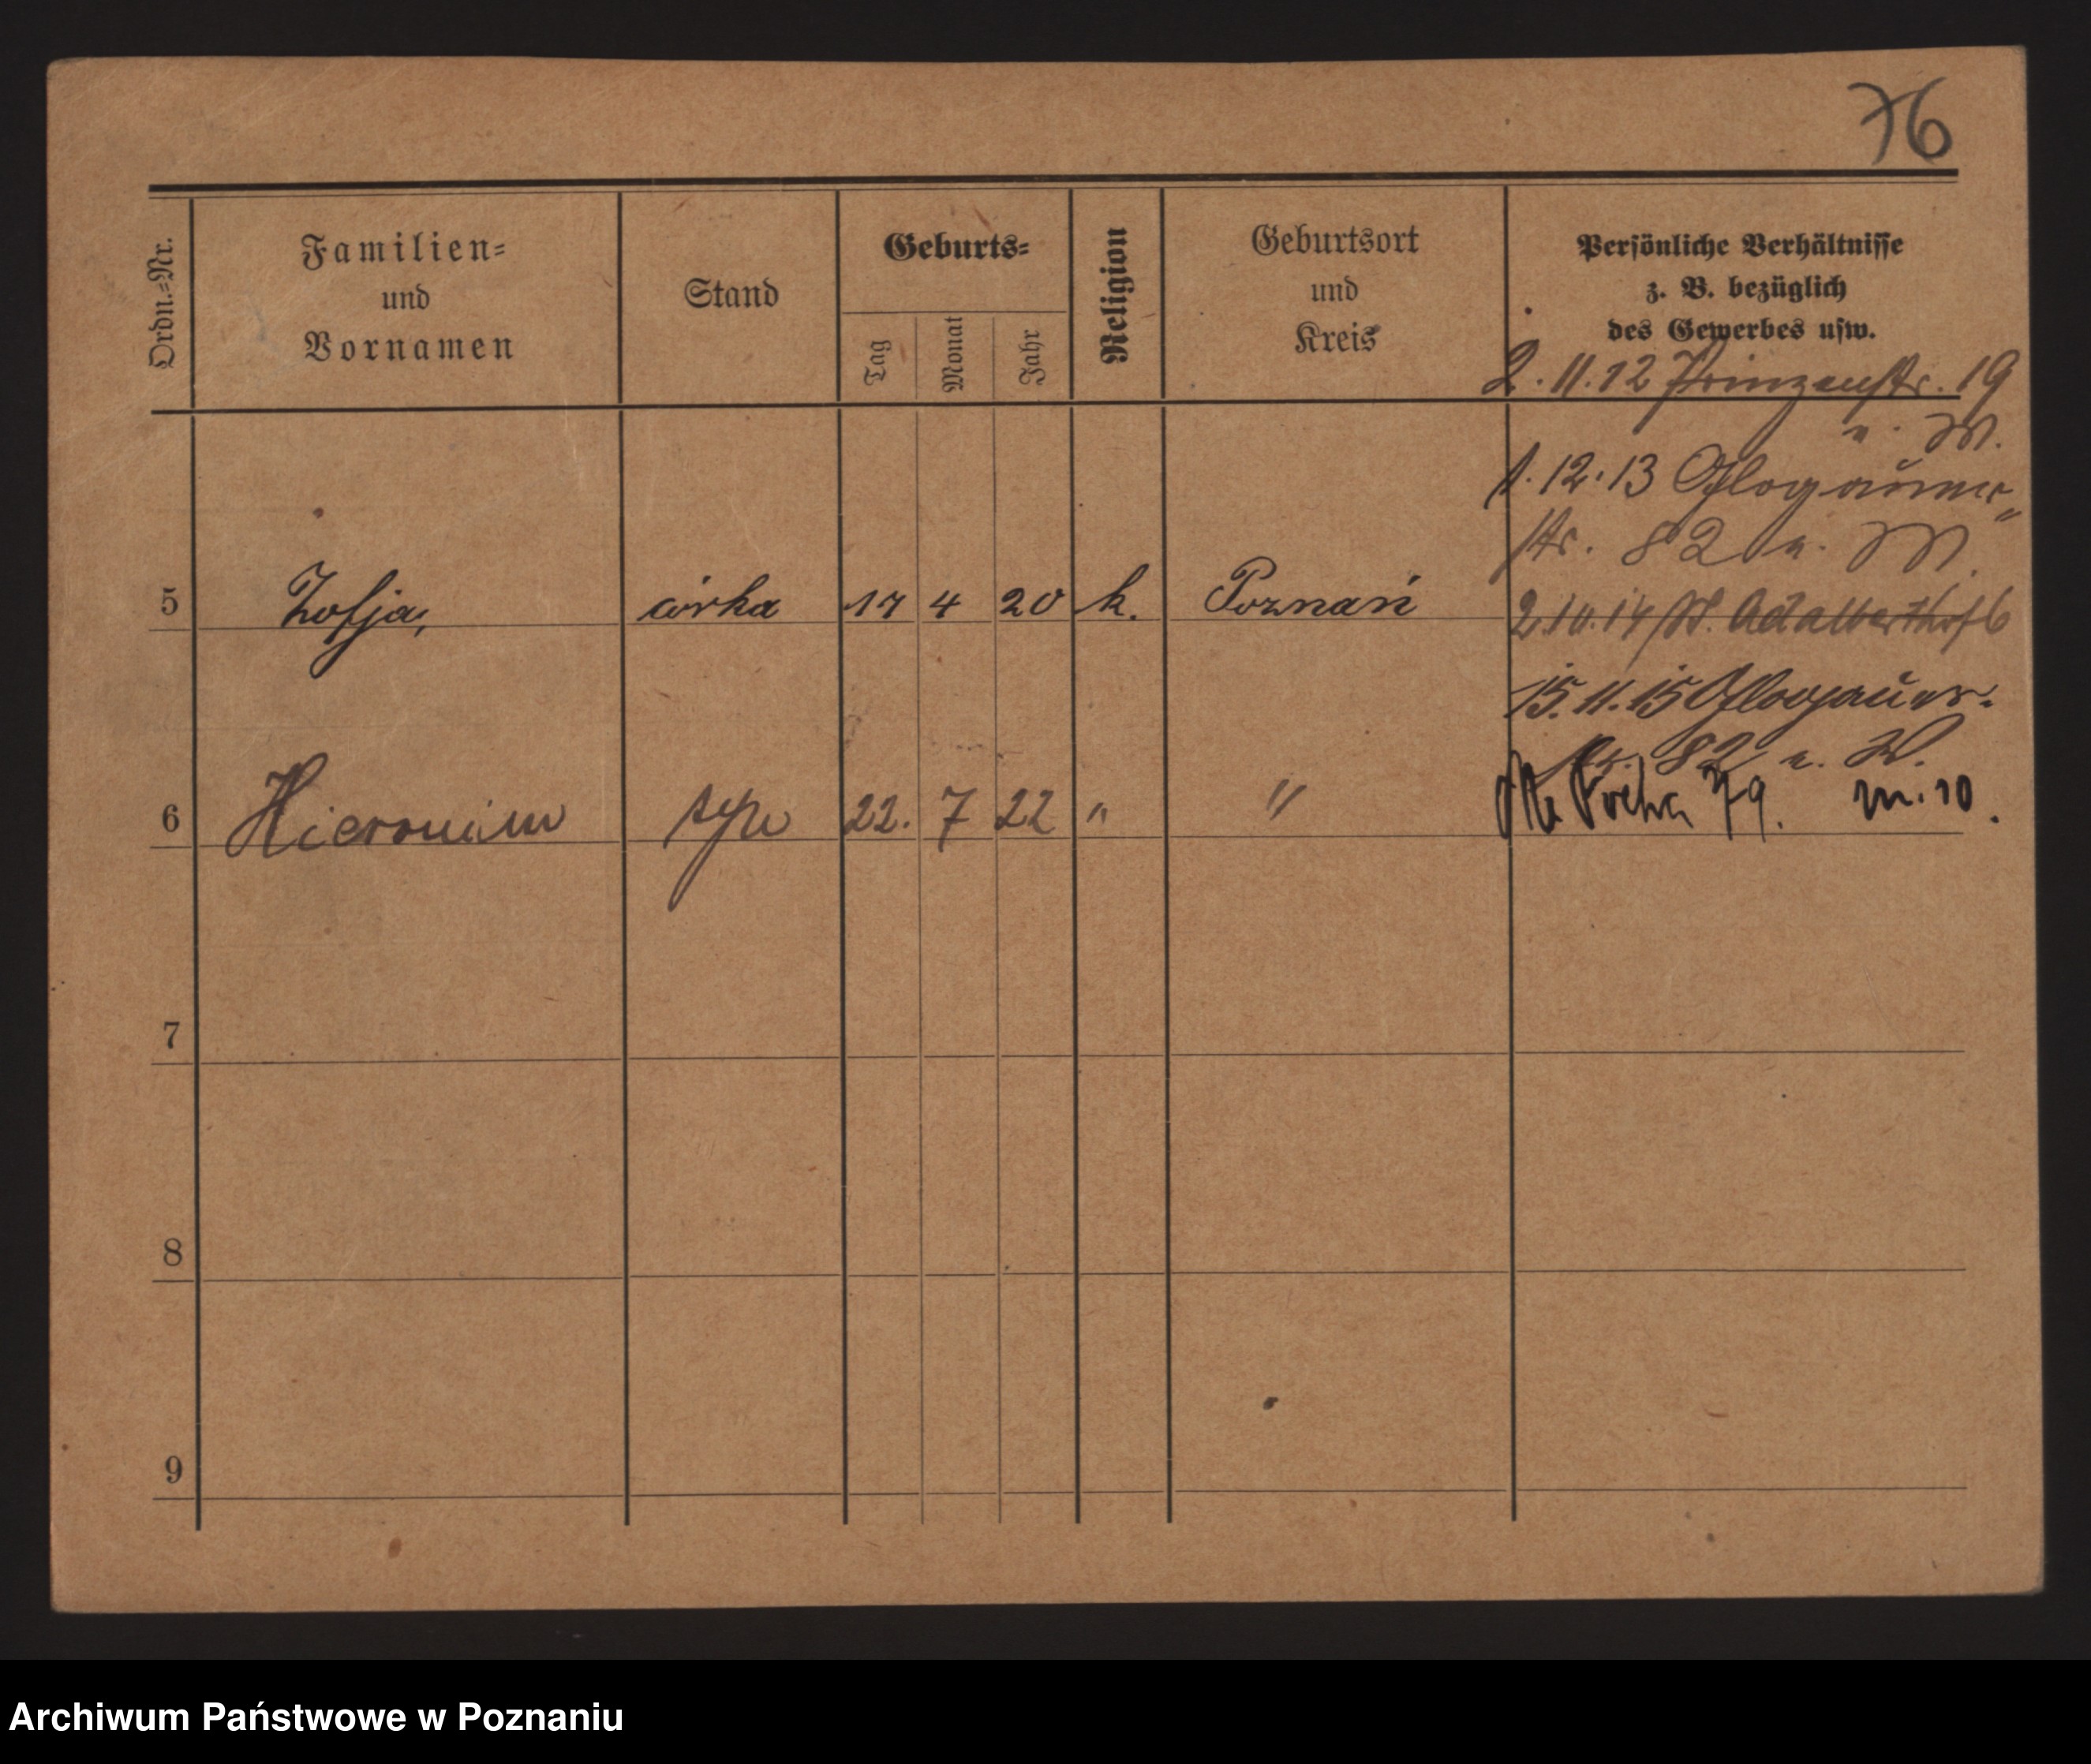 76
Ordn.-Nr.
Familien-
und
Vornamen
Stand
Geburts-
Tag
Monat
Jahr
Religion
Geburtsort
und
Kreis
Persönliche Verhältnisse
z. B. bezüglich
des Gewerbes usw.
2.11.12 Prinzenstr. 19
u. W.
1.12.13 Glogauer-
str. 82 u. W.
5 Zofja, córka 17 4 20 k. Poznań
2.10.14 St. Adalbertstr 6
15.11.15 Glogauer-
str. 82 u. W.
6 Hieronim syn 22. 7 22 " "
Focha 79. m. 10.
7
8
9
Archiwum Państwowe w Poznaniu